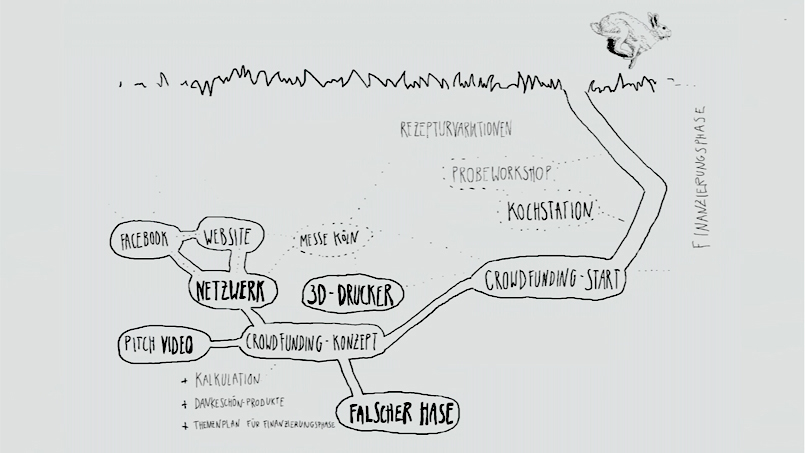 REZEPTURVARIATIONEN
FINANZIERUNGSPHASE
PROBEWORKSHOP
KOCHSTATION
FACEBOOK
WEBSITE
MESSE KÖLN
NETZWERK
3D-DRUCKER
CROWDFUNDING-START
PITCH VIDEO
CROWDFUNDING-KONZEPT
+ KALKULATION
+ DANKESCHÖN-PRODUKTE
+ THEMENPLAN FÜR FINANZIERUNGSPHASE
FALSCHER HASE